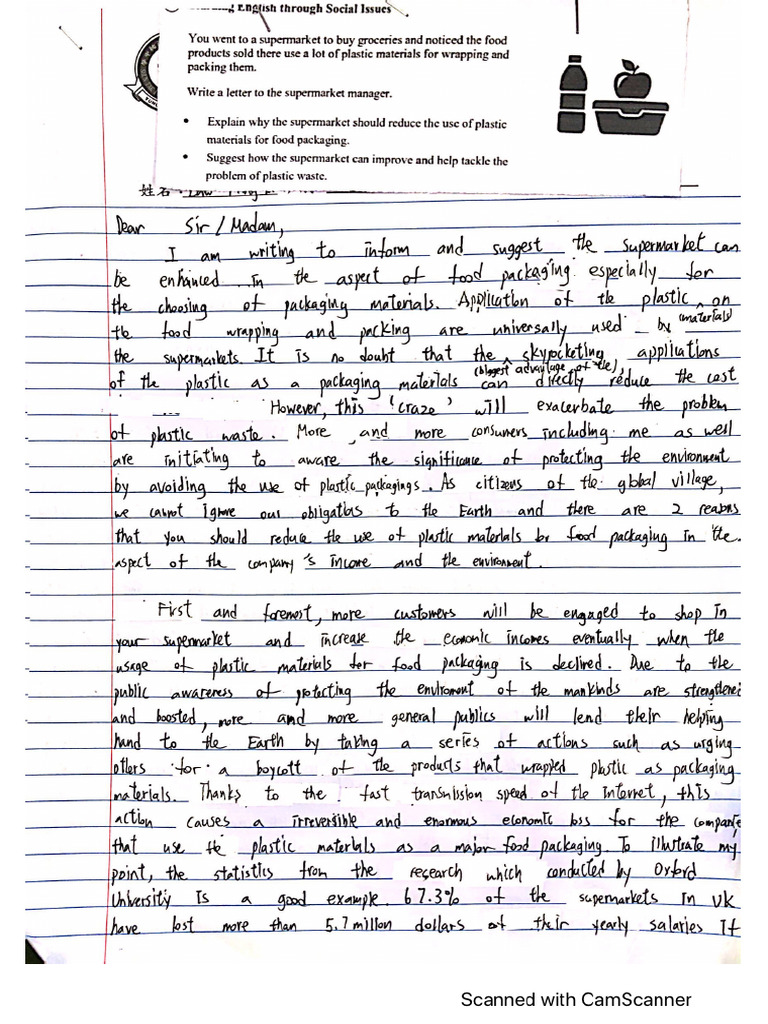 English through Social Issues
You went to a supermarket to buy groceries and noticed the food
products sold there use a lot of plastic materials for wrapping and
packing them.
Write a letter to the supermarket manager.
• Explain why the supermarket should reduce the use of plastic
materials for food packaging.
• Suggest how the supermarket can improve and help tackle the
problem of plastic waste.
姓名:
Dear Sir / Madam,
I am writing to inform and suggest the supermarket can
be enhanced in the aspect of food packaging especially for
the choosing of packaging materials. Application of the plastic ^ on
(materials)
the food wrapping and packing are universally used by
the supermarkets. It is no doubt that the ^ skyrocketing applications
(biggest advantage of the)
of the plastic as a packaging materials can directly reduce the cost
... However, this 'craze' will exacerbate the problem
of plastic waste. More and more consumers including me as well
are initiating to aware the significance of protecting the environment
by avoiding the use of plastic packagings. As citizens of the global village,
we cannot ignore our obligations to the Earth and there are 2 reasons
that you should reduce the use of plastic materials for food packaging in the
aspect of the company's income and the environment.
First and foremost, more customers will be engaged to shop in
your supermarket and increase the economic incomes eventually when the
usage of plastic materials for food packaging is declined. Due to the
public awareness of protecting the enviroment of the mankinds are strengthened
and boosted, more and more general publics will lend their helping
hand to the Earth by taking a series of actions such as urging
others for a boycott of the products that wrapped plastic as packaging
materials. Thanks to the fast transmission speed of the Internet, this
action causes a irreversible and enormous economic loss for the companie
that use the plastic materials as a major food packaging. To illustrate my
point, the statistics from the research which conducted by Oxford
University is a good example. 67.3% of the supermarkets in UK
have lost more than 5.7 millon dollars of their yearly salaries if
Scanned with CamScanner